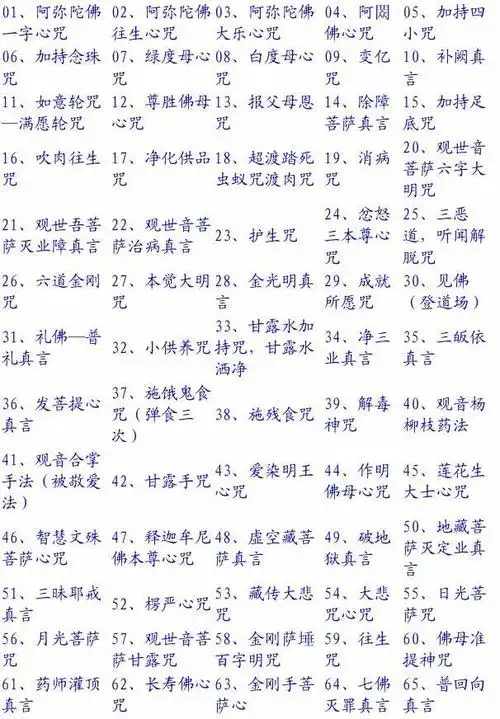 01、阿弥陀佛一字心咒
02、阿弥陀佛往生心咒
03、阿弥陀佛大乐心咒
04、阿閦佛心咒
05、加持四小咒
06、加持念珠咒
07、绿度母心咒
08、白度母心咒
09、变亿咒
10、补阙真言
11、如意轮咒—满愿轮咒
12、尊胜佛母心咒
13、报父母恩咒
14、除障菩萨真言
15、加持足底咒
16、吹肉往生咒
17、净化供品咒
18、超渡踏死虫蚁咒渡肉咒
19、消病咒
20、观世音菩萨六字大明咒
21、观世吾菩萨灭业障真言
22、观世音菩萨治病真言
23、护生咒
24、忿怒三本尊心咒
25、三恶道，听闻解脱咒
26、六道金刚咒
27、本觉大明咒
28、金光明真言
29、成就所愿咒
30、见佛（登道场）
31、礼佛—普礼真言
32、小供养咒
33、甘露水加持咒，甘露水洒净
34、净三业真言
35、三皈依真言
36、发菩提心真言
37、施饿鬼食咒（弹食三次）
38、施残食咒
39、解毒神咒
40、观音杨柳枝药法
41、观音合掌手法（被敬爱法）
42、甘露手咒
43、爱染明王心咒
44、作明佛母心咒
45、莲花生大士心咒
46、智慧文殊菩萨心咒
47、释迦牟尼佛本尊心咒
48、虚空藏菩萨真言
49、破地狱真言
50、地藏菩萨灭定业真言
51、三昧耶戒真言
52、楞严心咒
53、藏传大悲咒
54、大悲咒心咒
55、日光菩萨咒
56、月光菩萨咒
57、观世音菩萨甘露咒
58、金刚萨埵百字明咒
59、往生咒
60、佛母准提神咒
61、药师灌顶真言
62、长寿佛心咒
63、金刚手菩萨心
64、七佛灭罪真言
65、普回向真言